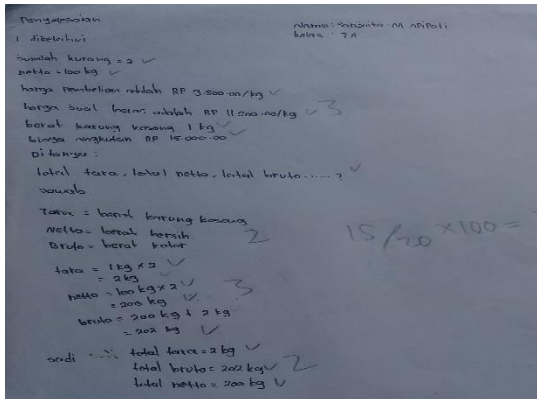 Penyelesaian
Nama: M
Kelas: 7A
1. diketahui
Jumlah karung = 2
netto = 100 kg
harga pembelian adalah RP 9.500.00/kg
harga jual beras adalah RP 11.500.00/kg 3
berat karung kosong 1 kg
biaya angkutan RP 15.000.00
Ditanya:
total tara, total netto, total bruto......?
Jawab
Tara = berat karung kosong
Netto = berat bersih
Bruto = berat kotor 2
15/20 × 100 =
tara = 1 kg × 2
= 2 kg
netto = 100 kg × 2 3
= 200 kg
bruto = 200 kg + 2 kg
= 202 kg
Jadi total tara = 2 kg
total bruto = 202 kg 2
total netto = 200 kg